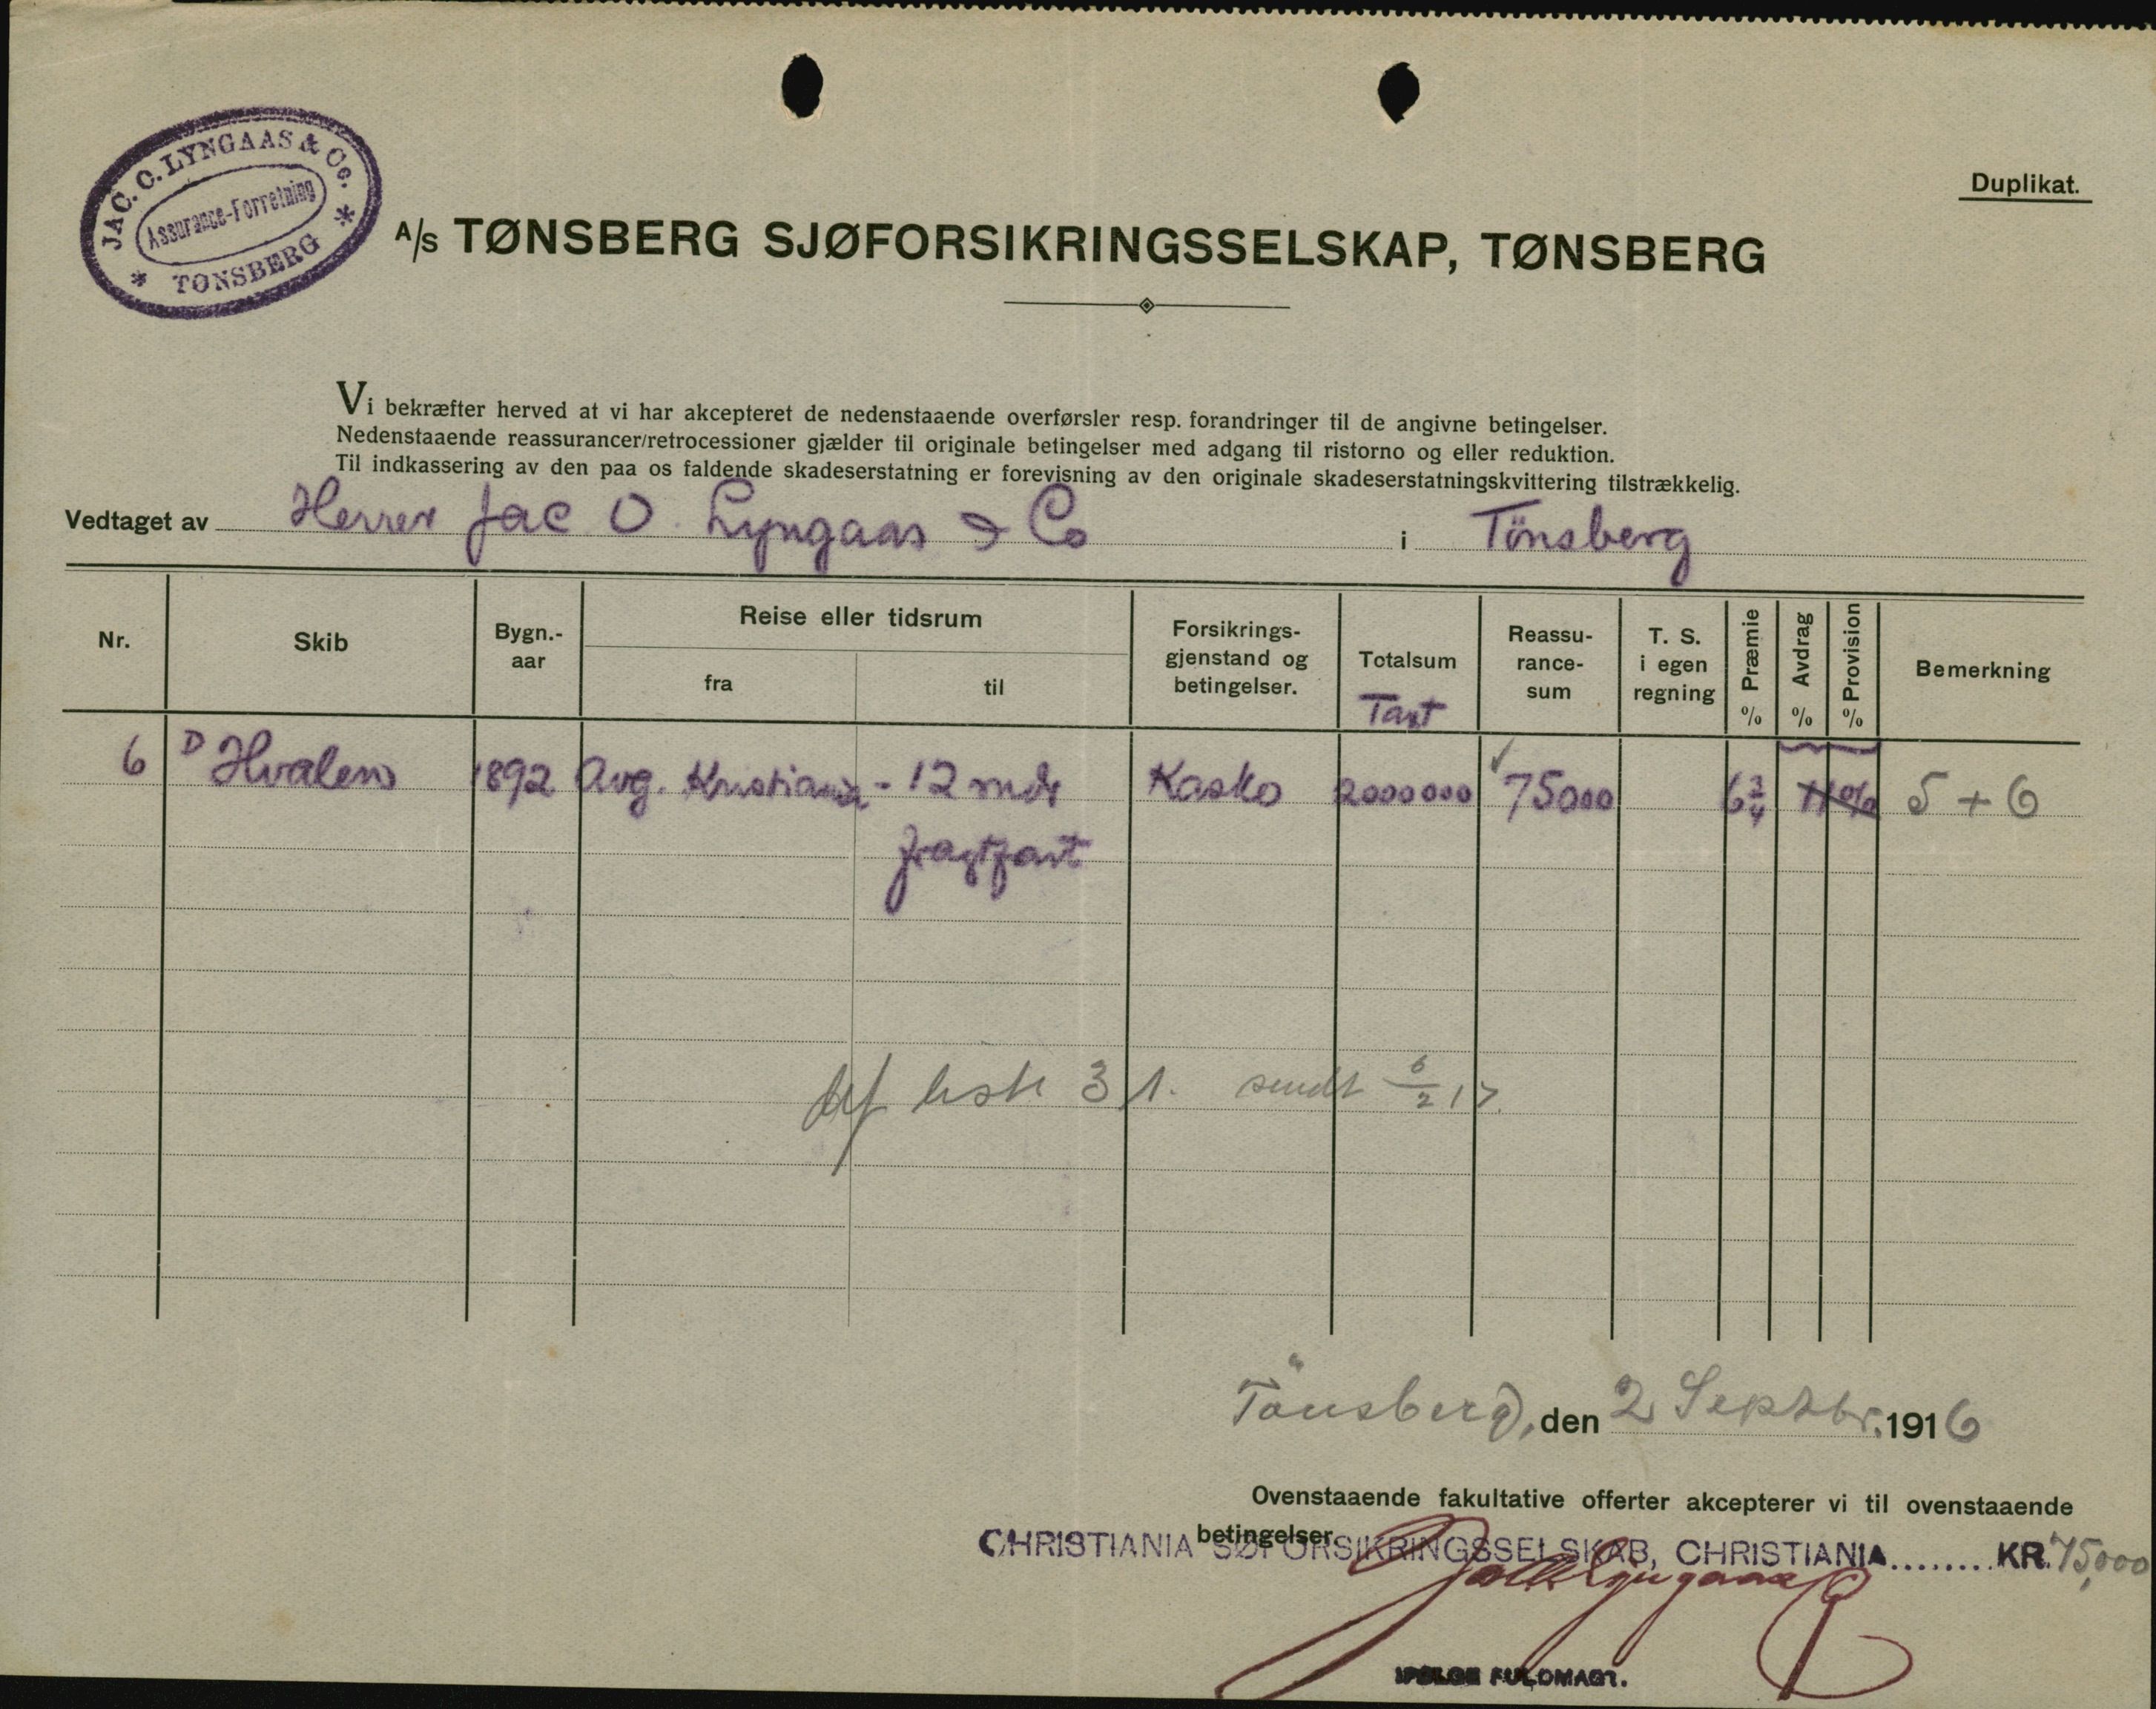 JAC. O. LYNGAAS & Co.
Assurance-Forretning
* TONSBERG *
Duplikat.
A/S TØNSBERG SJØFORSIKRINGSSELSKAP, TØNSBERG
Vi bekræfter herved at vi har akcepteret de nedenstaaende overførsler resp. forandringer til de angivne betingelser.
Nedenstaaende reassurancer/retrocessioner gjælder til originale betingelser med adgang til ristorno og eller reduktion.
Til indkassering av den paa os faldende skadeserstatning er forevisning av den originale skadeserstatningskvittering tilstrækkelig.
Vedtaget av Herrer Jac O. Lyngaas & Co i Tönsberg
Nr. Skib Bygn.-aar Reise eller tidsrum fra til Forsikrings-gjenstand og betingelser. Totalsum Taxt Reassu-rance-sum T. S. i egen regning Præmie % Avdrag % Provision % Bemerkning
6 D Hvalen 1892 Avg. Kristiania - 12 mdr Kasko 2000000 75000 6 3/4 11% 5 + 6
fragtfart
liste 31. sendt 6/2 17.
Tönsberg, den 2 Septbr. 1916
Ovenstaaende fakultative offerter akcepterer vi til ovenstaaende
betingelser
CHRISTIANIA SØFORSIKRINGSSELSKAB, CHRISTIANIA........ KR. 75,000
Jac O Lyngaas & Co
IFØLGE FULDMAGT.